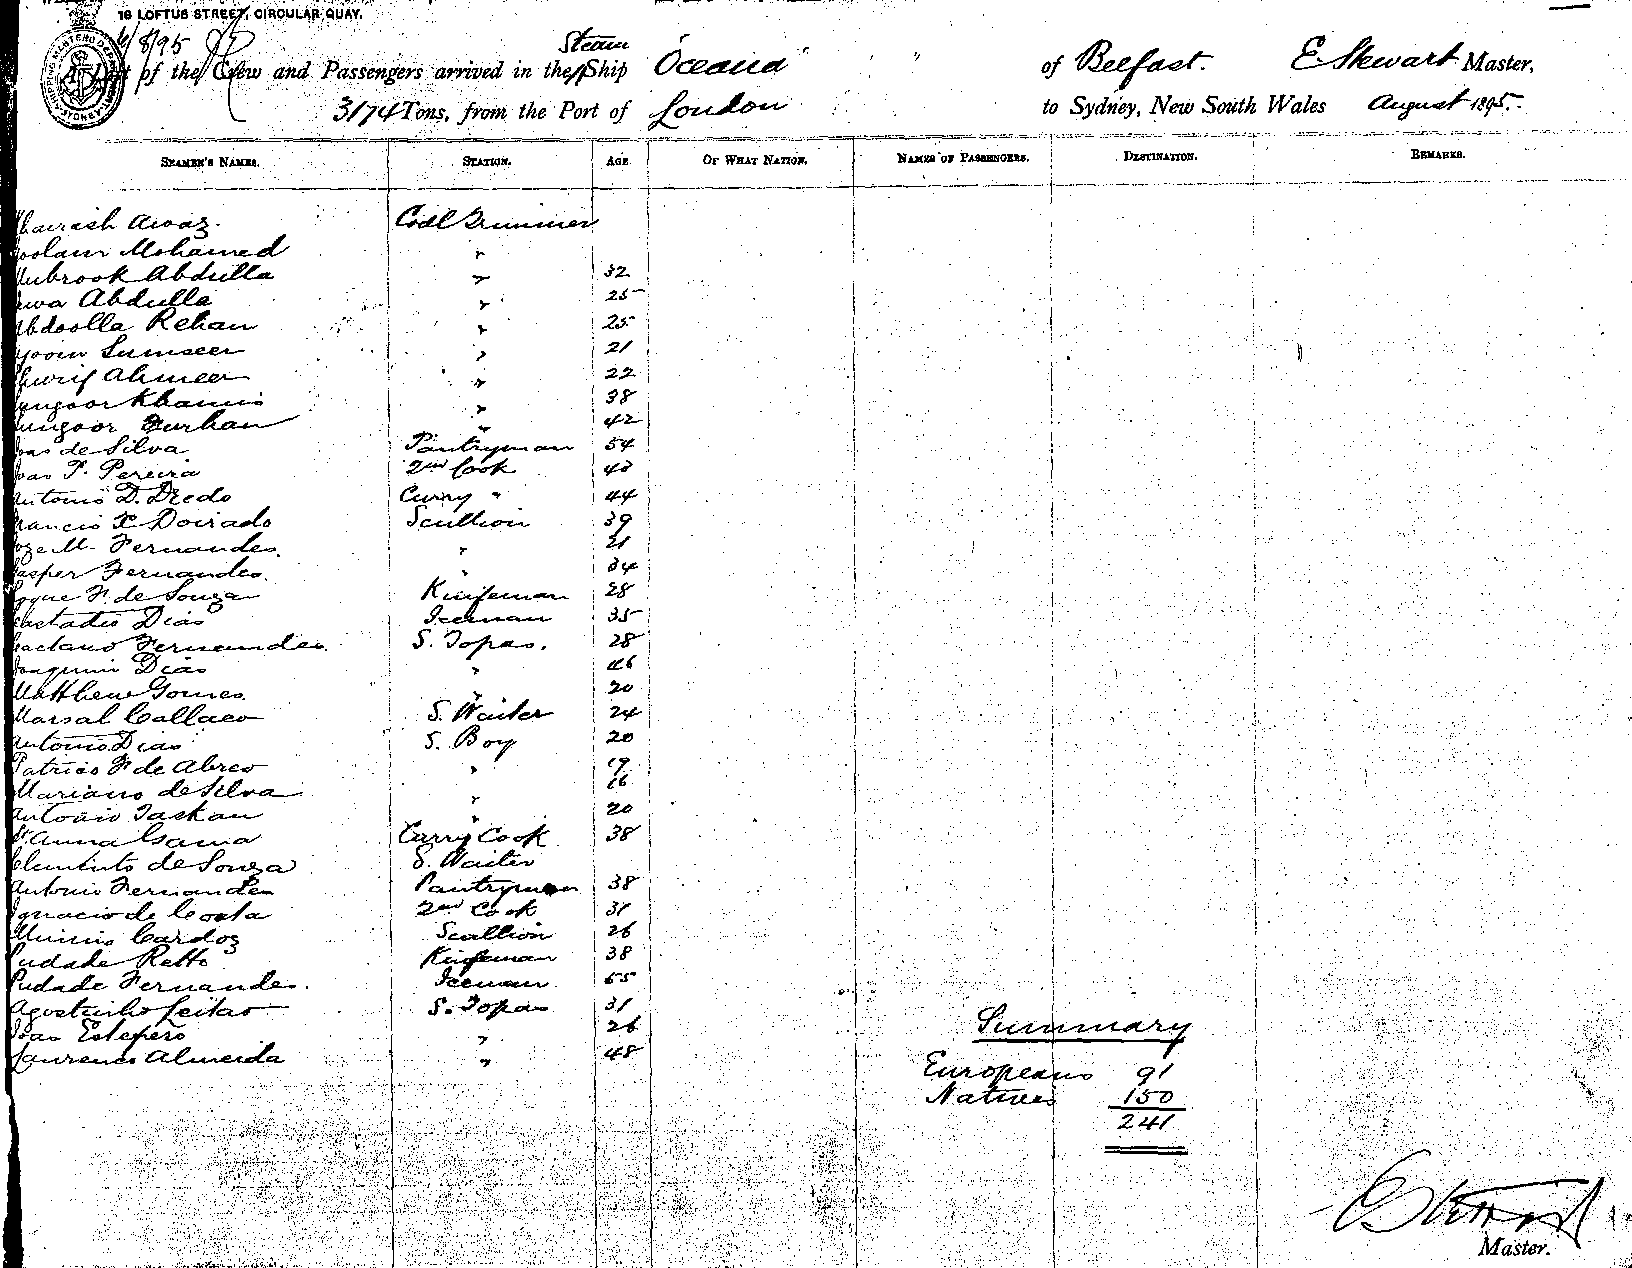 18 LOFTUS STREET, CIRCULAR QUAY.
6/8/95
Steam
A List of the Crew and Passengers arrived in the Ship Oceana " of Belfast. E Stewart Master,
3174 Tons, from the Port of London to Sydney, New South Wales August 1895.
SEAMEN'S NAMES. STATION. AGE OF WHAT NATION. NAMES OF PASSENGERS. DESTINATION. REMARKS.
Awaz. Coal Trimmer
Mohamed "
Mubrook Abdulla " 32
Abdulla " 25
Abdoolla Rehan " 25
Sumseer " 21
Ahmeer " 22
Khamis " 38
Furhan " 42
Joao de Silva Pantryman 54
Joao P. Pereira 2nd Cook 40
Antonio D. Dredo Curry " 44
Francis X Dorado Scullion 39
Joze M. Fernandes. " 21
Jasper Fernandes. " 34
Roque F. de Souza Knifeman 28
Dias Iceman 35
Caetano Fernandes. S. Topas. 28
Joaquim Dias " 46
Matthew Gomes. " 20
Marsal Collaco S. Waiter 24
Antonio Dias S. Boy 20
Patricio F. de Abreo " 19
Mariano de Silva 16
Antonio Taskan " 20
St Anna Gama Curry Cook 38
Clemento de Souza S. Waiter
Antonio Fernandes Pantryman 38
Ignacio de Costa 2nd Cook 31
Minino Cardoz Scullion 26
Piedade Rebto Knifeman 38
Piedade Fernandes. Iceman 55
Agostinho Leitao S. Topas 31
Joao Estepero " 26
Laurence Almeida " 48
Summary
Europeans 91
Natives 150
241
E Stewart
Master.